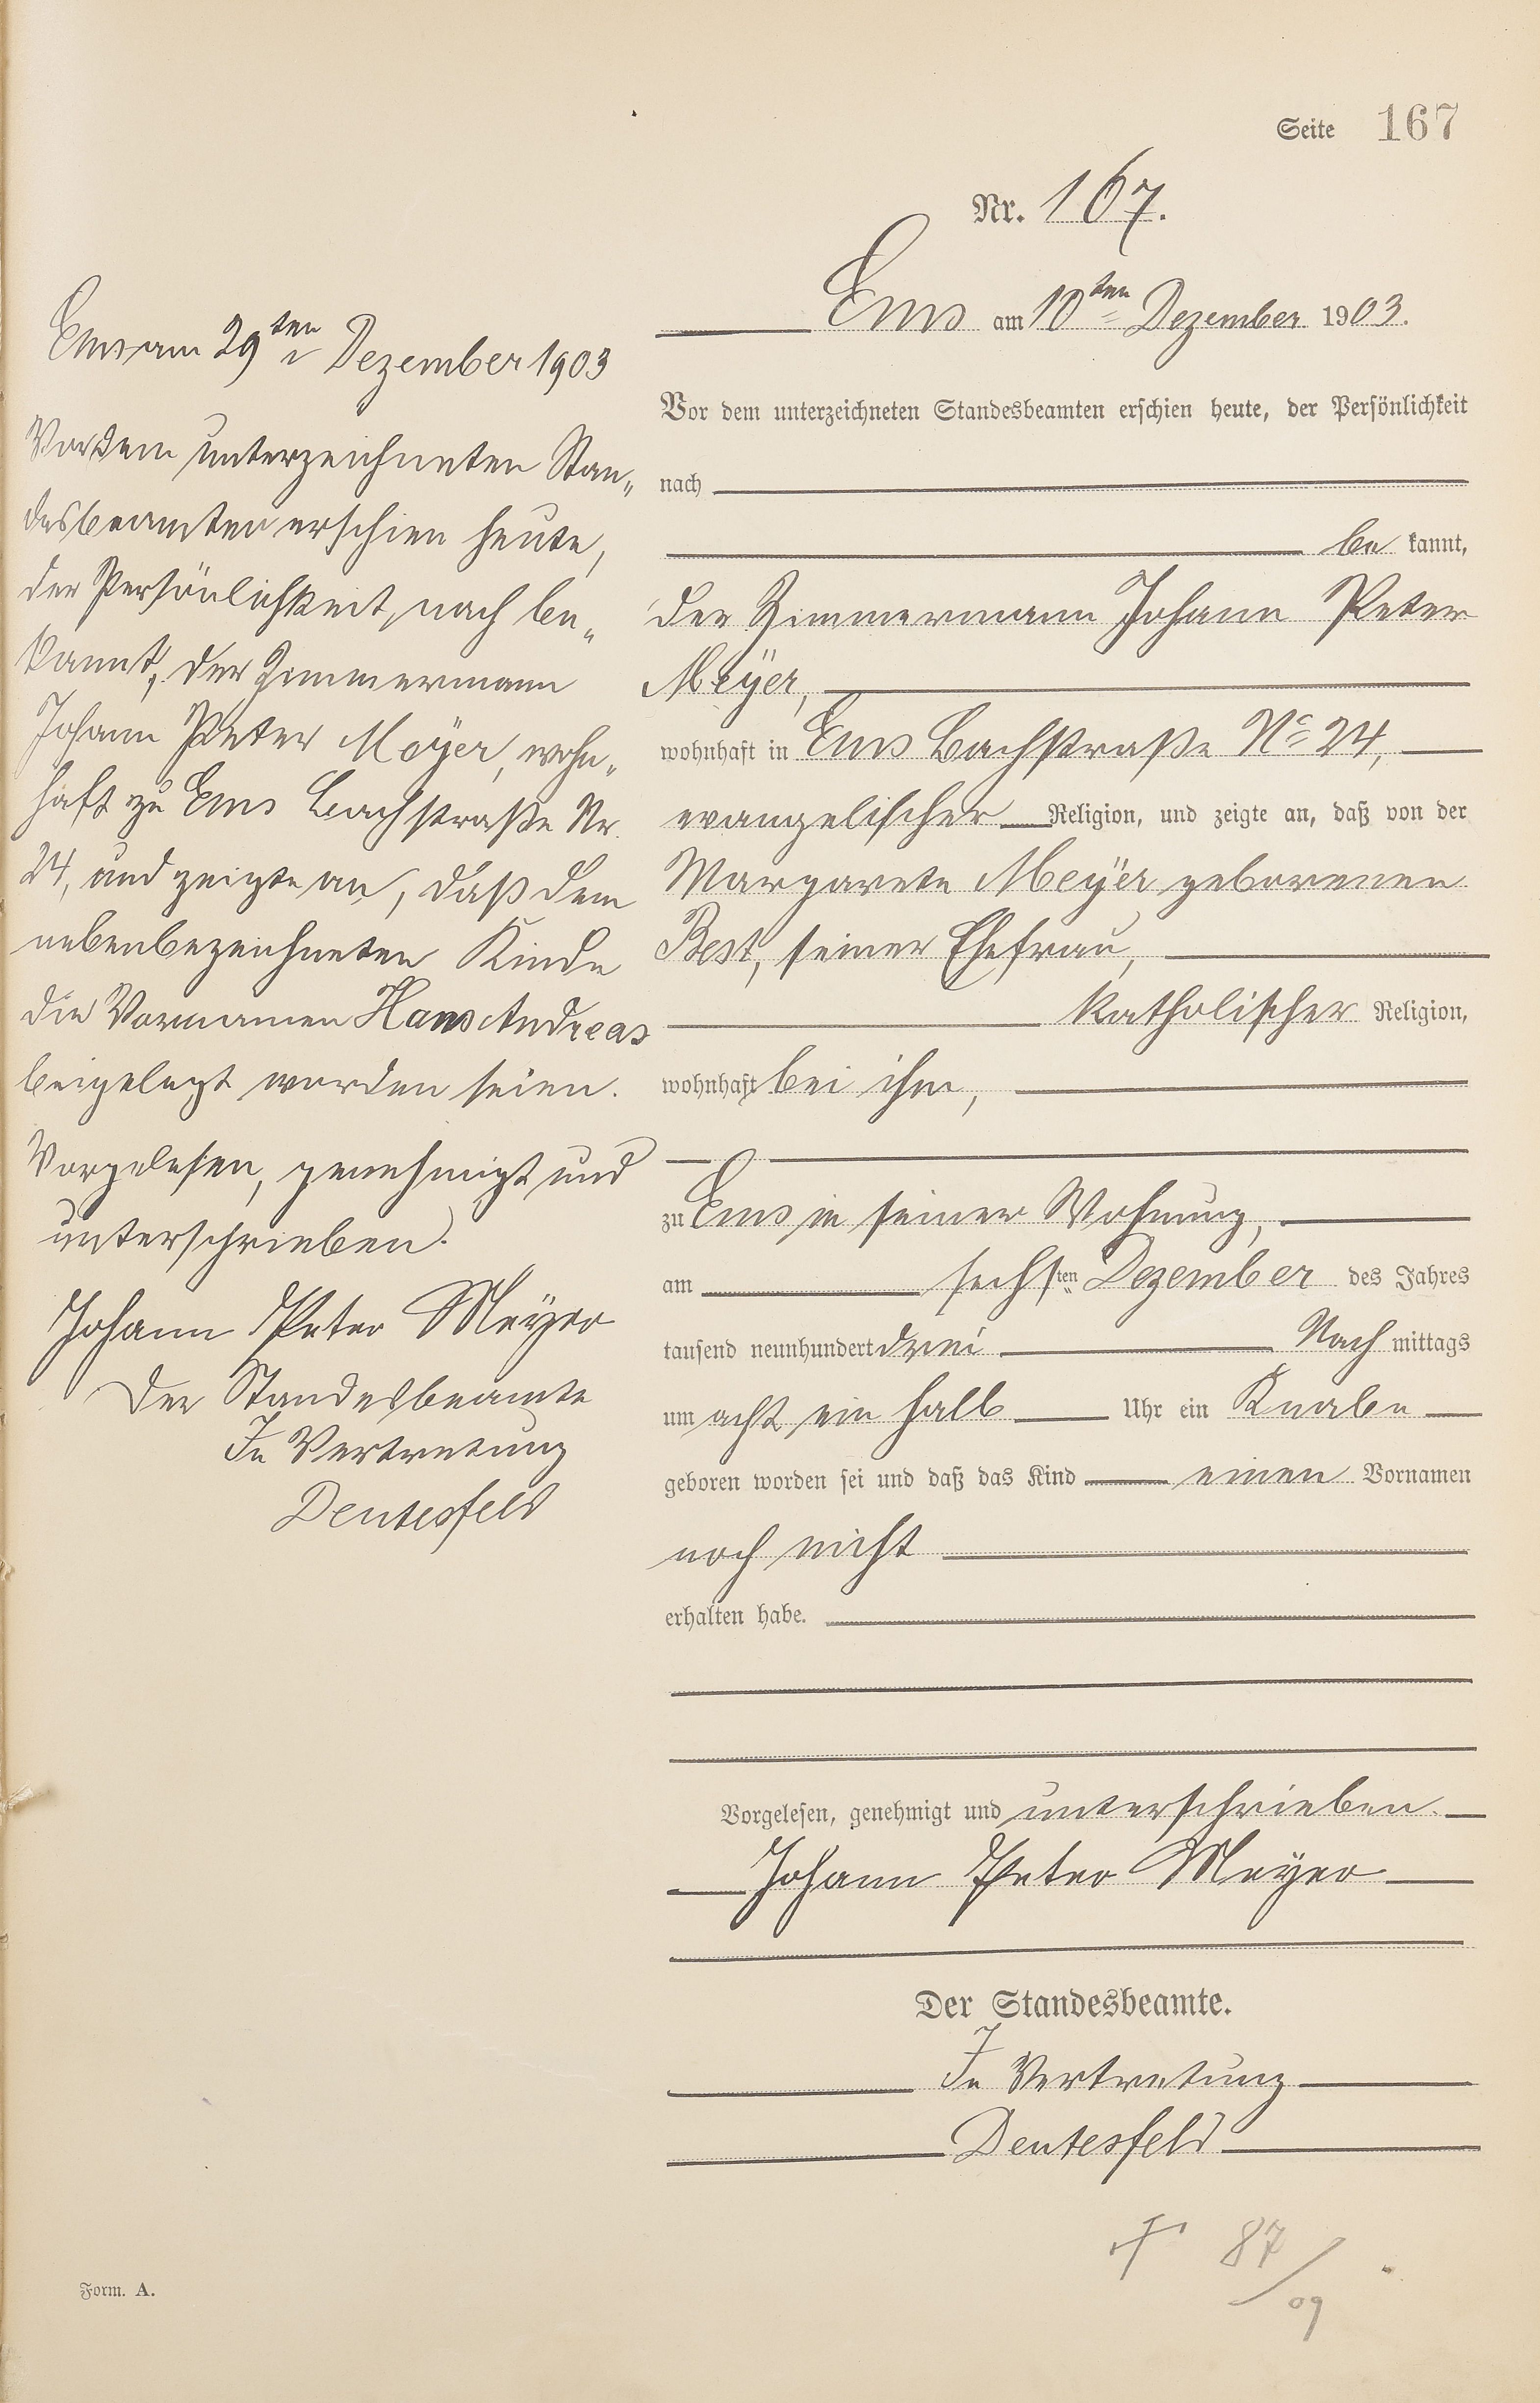 Seite 167
Nr. 167.
Ems am 10ten Dezember 1903.
Vor dem unterzeichneten Standesbeamten erschien heute, der Persönlichkeit
nach
be kannt,
der Zimmermann Johann Peter
Meÿer,
wohnhaft in Ems Bachstraße No 24,
evangelischer Religion, und zeigte an, daß von der
Margarete Meÿer geborenen
Best, seiner Ehefrau,
katholischer Religion,
wohnhaft bei ihm,
zu Ems in seiner Wohnung,
am sechsten Dezember des Jahres
tausend neunhundert drei Nach mittags
um acht ein halb Uhr ein Knabe
geboren worden sei und daß das Kind einen Vornamen
noch nicht
erhalten habe.
Vorgelesen, genehmigt und unterschrieben.
Johann Peter Meyer
Der Standesbeamte.
In Vertretung
Dentesfeld
Ems am 29ten Dezember 1903
Vor dem unterzeichneten Stan„
desbeamten erschien heute,
der Persönlichkeit, nach be„
kannt, der Zimmermann
Johann Peter Meÿer, wohn„
haft zu Ems Bachstraße Nr.
24, und zeigte an, daß dem
nebenbezeichneten Kinde
die Vornamen Hans Andreas
beigelegt worden seien.
Vorgelesen, genehmigt und
unterschrieben.
Johann Peter Meÿer
Der Standesbeamte
In Vertretung
Dentesfeld
87/09
Form. A.